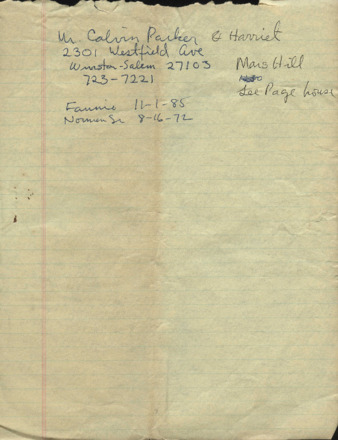 Mr. Calvin Parker & Harriet
2301 Westfield Ave
Winston-Salem 27103
723-7221
Mars Hill
See Page house
Fannie 11-1-85
Norman Sr 8-16-72